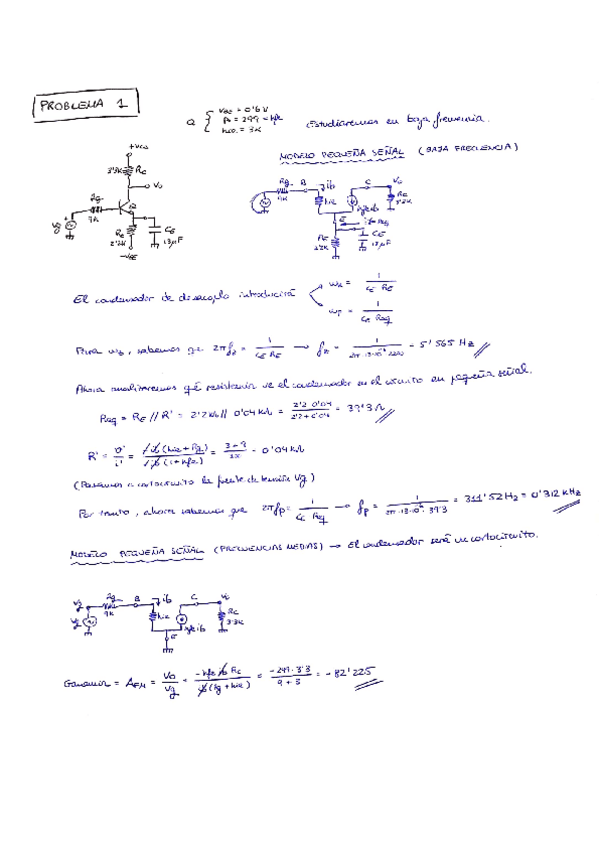 PROBLEMA 1
Q { VBE = 0'6 V
β = 299 = hfe
hie = 3K
Estudiaremos en baja frecuencia.
MODELO PEQUEÑA SEÑAL (BAJA FRECUENCIA)
+Vcc
3'3K Rc
Vo
Rg
9K
Vg
Q
RE
2'2K
CE
13μF
-VEE
Rg
9K
B
ib
hie
C
Vo
hfe ib
Rc
3'3K
E
RE
2'2K
CE
13μF
El condensador de desacoplo introducirá
wz = 1 / CE RE
wp = 1 / CE Req
Para wz, sabemos que 2πfz = 1 / CE RE → fz = 1 / 2π·13·10⁻⁶·2200 = 5'565 Hz
Ahora analizaremos qué resistencia ve el condensador en el circuito en pequeña señal.
Req = RE // R' = 2'2K // 0'04K = 2'2·0'04 / 2'2+0'04 = 39'3 Ω
R' = = -ib (hie + Rg) / -ib (1+hfe) = 3+9 = 0'04K
(Pasamos a cortocircuito la fuente de tensión Vg)
Por tanto, ahora sabemos que 2πfp = 1 / CE Req → fp = 1 / 2π·13·10⁻⁶·39'3 = 311'52 Hz = 0'312 kHz
MODELO PEQUEÑA SEÑAL (FRECUENCIAS MEDIAS) → El condensador será un cortocircuito.
Vg
Rg
9K
B
ib
C
Vo
Vg
hie
hfe ib
Rc
3'3K
E
Ganancia = AFM = Vo / Vg = -hfe ib Rc / ib (Rg + hie) = -299·3'3 / 9+3 = -82'225